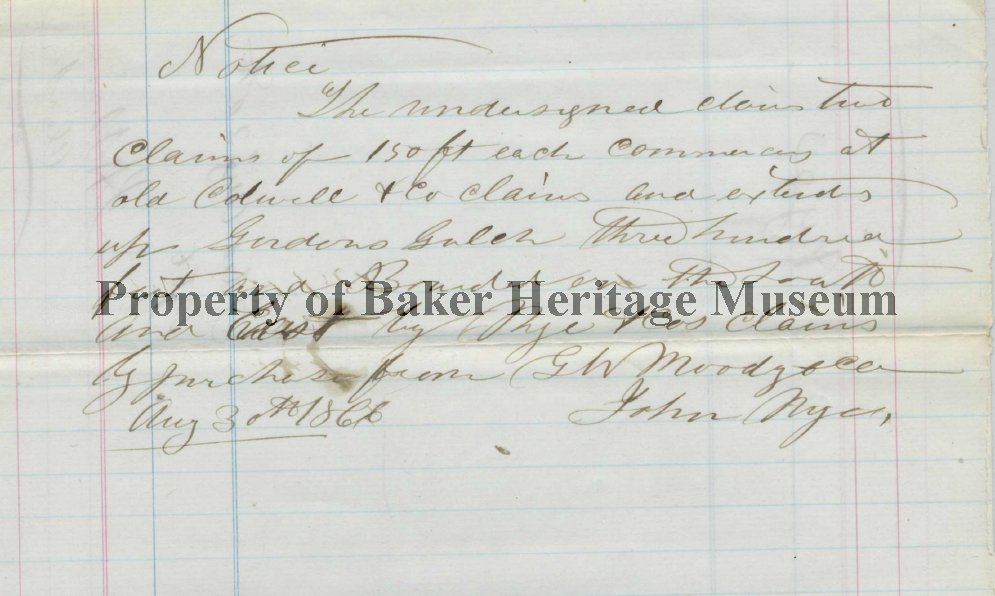 Notice
The undersigned claims two
claims of 150 ft each commencing at
old Colwell & Co claims and extends
up Gordons Gulch three hundred
feet and Bounded on the south
Property of Baker Heritage Museum
and East by Nye & Cos claims
By purchase from GW Moody & Co
Aug 30th 1866 John Nye,